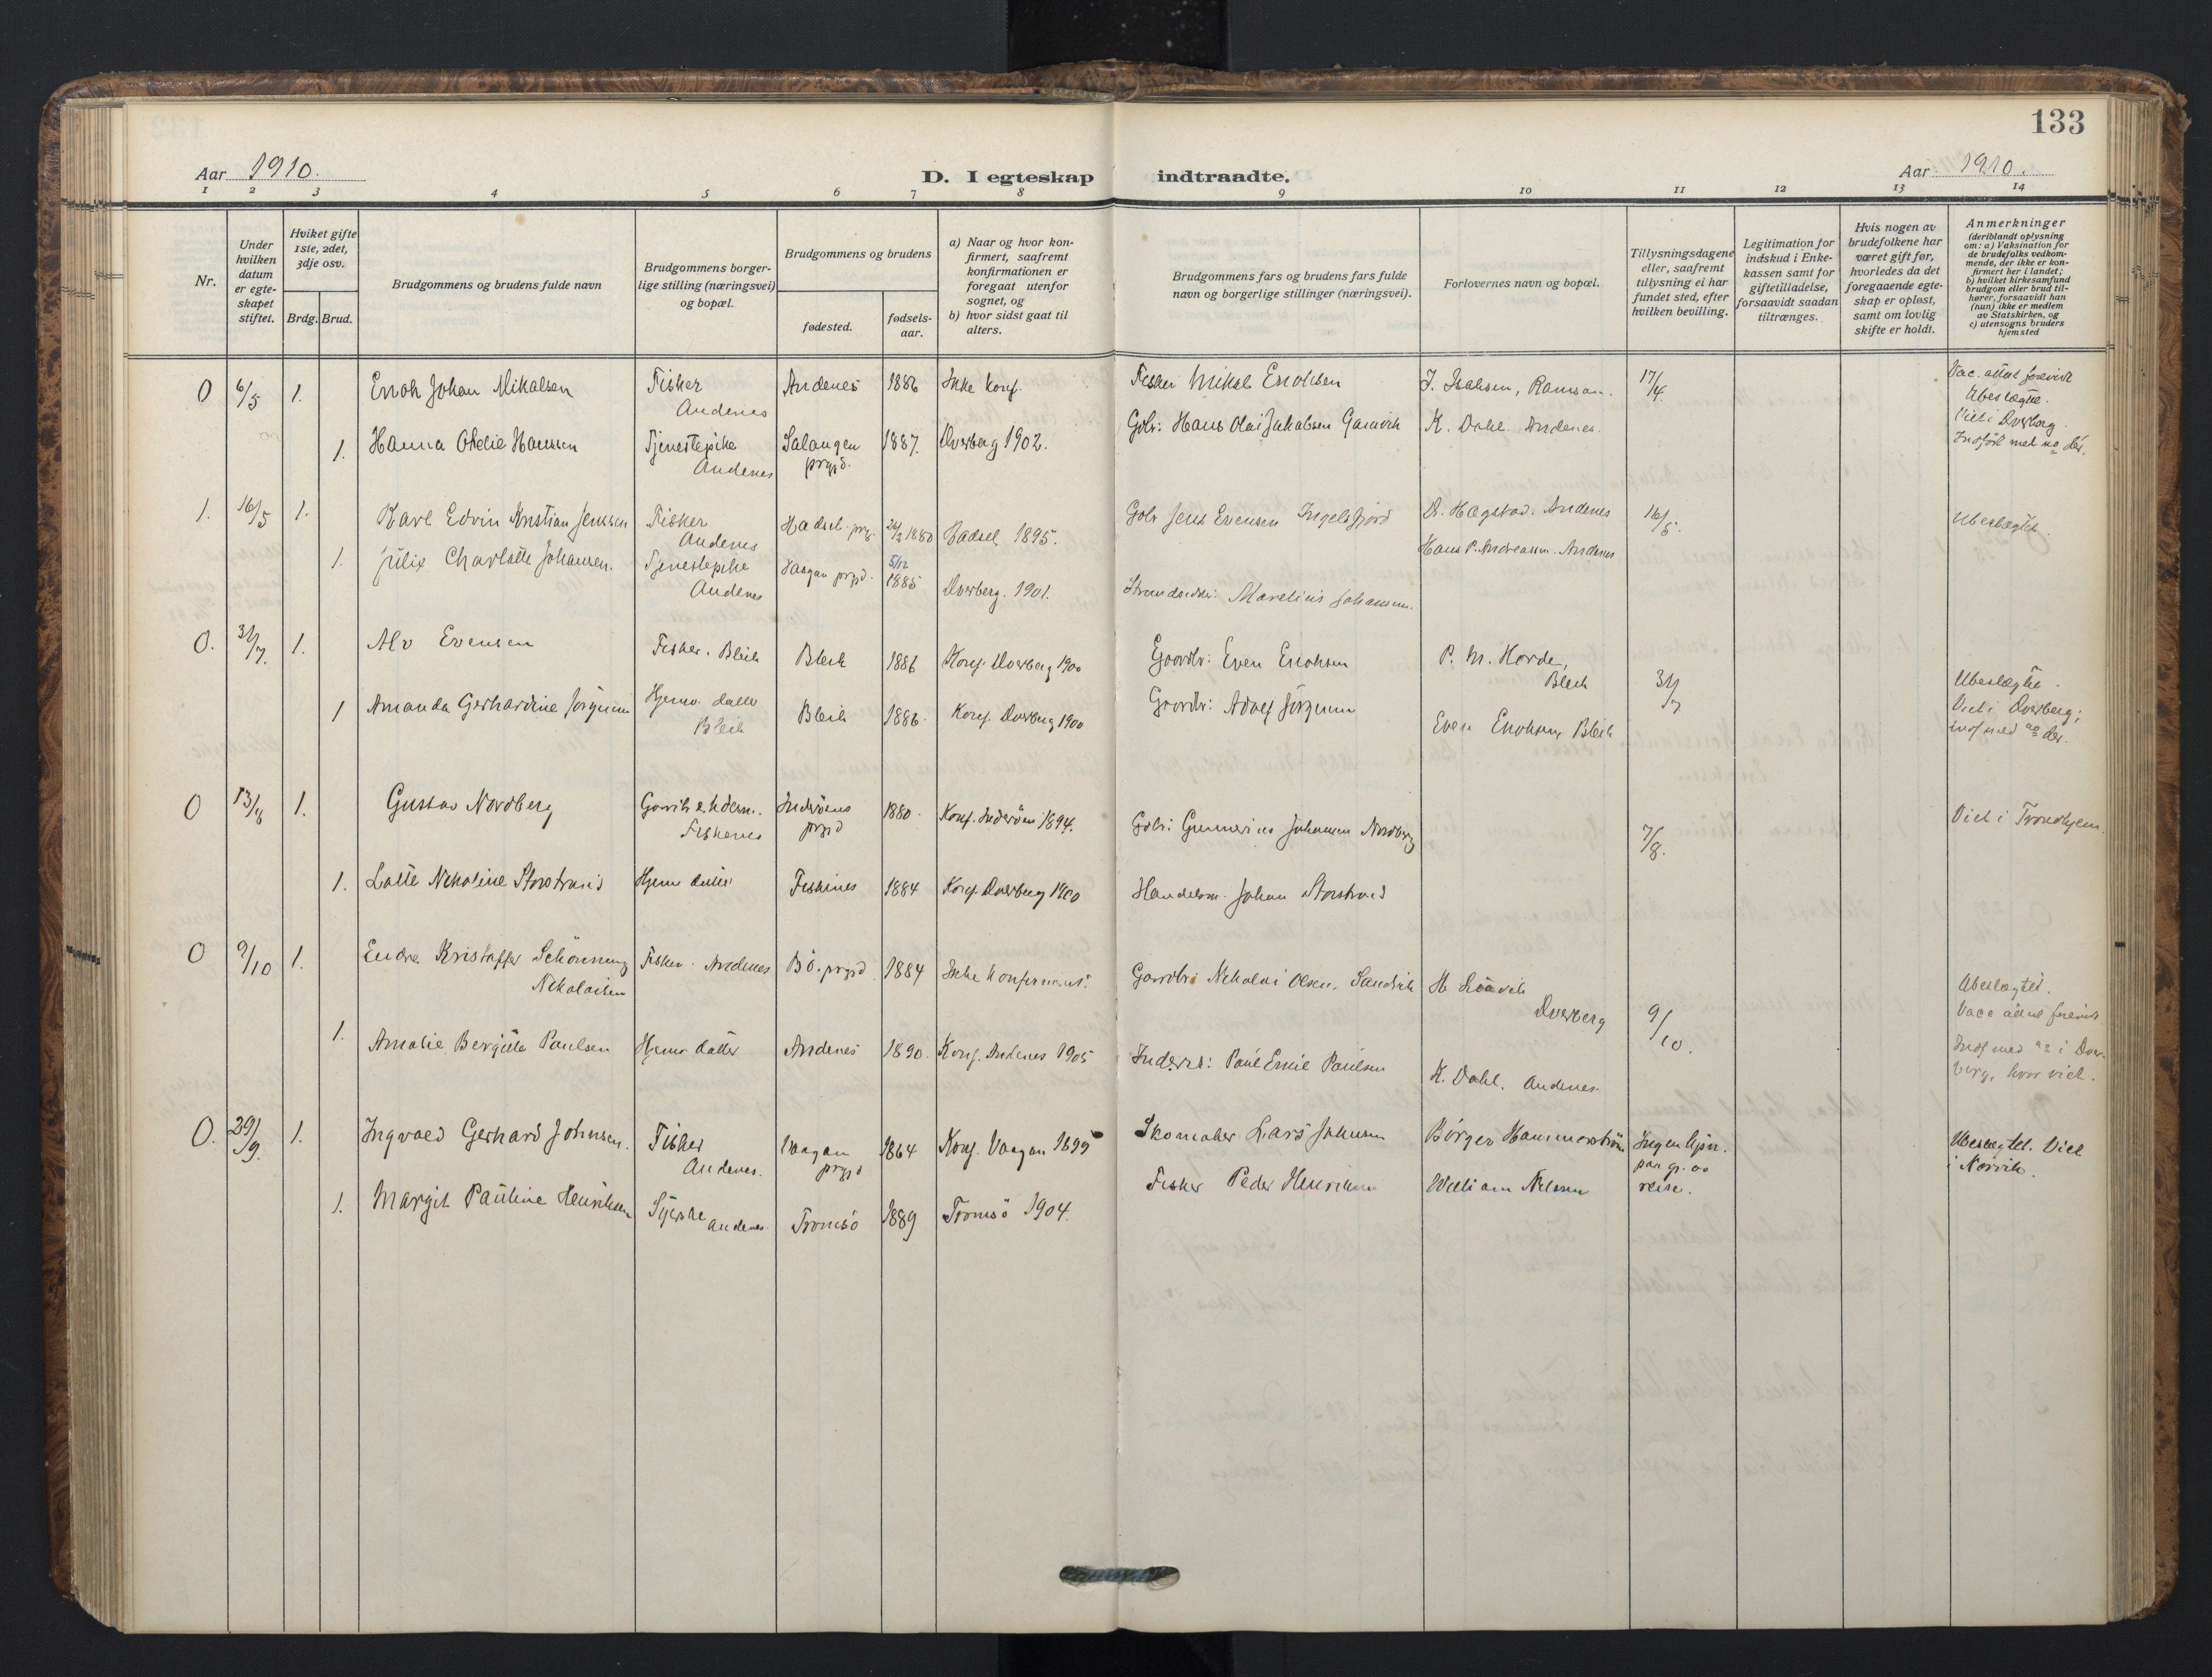 133
Aar 1910.
D. I egteskap indtraadte.
Aar 1910.
1 2 3 4 5 6 7 8 9 10 11 12 13 14
Nr.
Under hvilken datum er egte-skapet stiftet.
Hviket gifte 1ste, 2det, 3dje osv.
Brdg. Brud.
Brudgommens og brudens fulde navn
Brudgommens borger-lige stilling (næringsvei) og bopæl.
Brudgommens og brudens
fødested.
fødsels-aar.
a) Naar og hvor kon-firmert, saafremt konfirmationen er foregaat utenfor sognet, og
b) hvor sidst gaat til alters.
Brudgommens fars og brudens fars fulde navn og borgerlige stillinger (næringsvei).
Forlovernes navn og bopæl.
Tillysningsdagene eller, saafremt tillysning ei har fundet sted, efter hvilken bevilling.
Legitimation for indskud i Enke-kassen samt for giftetilladelse, forsaavidt saadan tiltrænges.
Hvis nogen av brudefolkene har været gift før, hvorledes da det foregaaende egte-skap er opløst, samt om lovlig skifte er holdt.
Anmerkninger (deriblandt oplysning om: a) Vaksination for de brudefolks vedkom-mende, der ikke er kon-firmert her i landet; b) hvilket kirkesamfund brudgom eller brud til-hører, forsaavidt han (hun) ikke er medlem av Statskirken, og c) utensogns bruders hjemsted
0 6/5 1. Enok Johan Mikalsen Fisker Andenes Andenes 1886 Ikke konf. Fisker Mikal Enoksen J. Isaksen, Ramsaa. 17/4. Vac. attest forevist
Ubeslægtet.
1. Hanna Otelie Hanssen Tjenestepike Andenes Salangen prgjd. 1887. Dverberg 1902. Gbr: Hans Olai Jakobsen Gamvik K. Dahl. Andenes. Viet i Dverberg.
Indført med no der.
1. 16/5 1. Karl Edvin Kristian Jenssen Fisker Andenes Hadsel prgj. 24/2 1880 Hadsel 1895. Gbr Jens Evensen Ingelsfjord O. Hagstad. Andenes 16/5. Ubeslægtet.
Hans P. Andreassen. Andenes
1. Julie Charlotte Johansen. Tjenestepike Andenes Vaagan prgjd. 5/12 1885 Dverberg. 1901. Strandsidder: Marelius Johansen.
0. 31/7. 1. Alv Evensen Fisker. Bleik Bleik 1886 Konf. Dverberg 1900 Gaardbr: Even Enoksen P. M. Horde, Bleik 31/7 Ubeslægtet.
1 Amanda Gerhardine Jørgensen Hjemv. datter Bleik Bleik 1886. Konf. Dverberg 1900 Gaardbr: Adolf Jørgensen Even Enoksen, Bleik Viet i Dverberg;
indf med no der.
0 13/8 1. Gustav Nordberg Fiskenes Inderøens prgjd 1880. Konf. Inderøen 1894. Gbr: Gunnerius Johansen Nordberg 7/8. Viet i Trondhjem
1. Lotte Nikoline Storstrand Hjemv datter Fiskenes 1884 Konf. Dverberg 1900 Handelsm. Johan Storstrand
0 9/10 1. Endre Kristoffer Schønning Nikolaisen Fisker. Andenes Bø. prgjd 1884 Ikke konfirmert. Gaardbr: Nikolai Olsen, Sandvik Dverberg 9/10. Ubeslægtet.
Vacc attest forevist.
1. Amalie Bergitte Paulsen Hjemv datter Andenes 1890. Konf. Andenes 1905 Inderst: Paul Emil Paulsen K. Dahl. Andenes. Indf med no i Dver-
berg, hvor viet.
0. 29/9. 1. Ingvald Gerhard Johnsen. Fisker Andenes. Vaagan prgjd 1864 Konf. Vaagan 1895 Skomaker Lars Johnsen Børger Hammerstrøm Ingen lysn. paa gr. av reise. Ubeslægtet. Viet i Narvik.
1. Margit Pauline Henriksen Syerske Andenes. Tromsø 1889 Tromsø 1904. Fisker Peder Henriksen William Nilssen